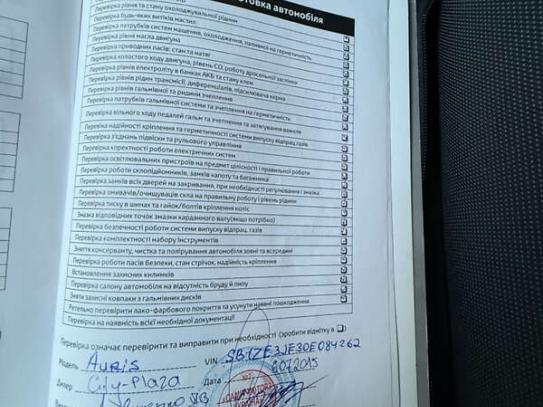 отовка автомобіля
Перевірка рівня та стану охолоджувальної рідини
Перевірка будь-яких витіків мастил
Перевірка патрубків систем мащення, охолодження, паливної на герметичність
Перевірка рівня масла двигуна
Перевірка приводних пасів: стан та натяг
Перевірка холостого ходу двигуна, рівень СО, роботу дросельної заслінки
Перевірка рівнів електроліту в банках АКБ та стану клем
Перевірка рівнів рідин трансмісії, диференціалів, підсилювача керма
Перевірка рівнів гальмівної та рідини зчеплення
Перевірка патрубків гальмівної системи та зчеплення на герметичність
Перевірка вільного ходу педалей гальм та зчеплення та затягування важеля
Перевірка надійності кріплення та герметичності системи випуску відпрац.газів
Перевірка з'єднань підвіски та рульового управління
Перевірка коректності роботи електричних систем
Перевірка освітлювальних пристроїв на предмет цілісності і правильної роботи
Перевірка роботи склопідйомників, замків капоту та багажника
Перевірка замків всіх дверей на закривання, при необхідності регулювання і змазка
Перевірка омивачів/очищувачів скла на правильну роботу і рівень рідини
Перевірка тиску в шинах та гайок/болтів кріплення коліс
Змазка відповідних точок змазки карданного валу(якщо потрібно)
Перевірка безпечності роботи системи випуску відпрац. газів
Перевірка комплектності набору інструментів
Зняття консерванту, чистка та полірування автомобіля зовні та всередині
Перевірка роботи пасів безпеки, стан стрічок, надійність кріплення
Встановлення захисних килимків
Перевірка салону автомобіля на відсутність бруду й пилу
Зняти захисні ковпаки з гальмівних дисків
Ретельно перевірити лако-фарбового покриття та усунути наявні пошкодження
Перевірка на наявність всієї необхідної документації
Перевірка означає перевірити та виправити при необхідності (зробити відмітку в ☐)
Модель Auris VIN SB1ZE3JE30E084262
Дилер City-Plaza Дата 6072015